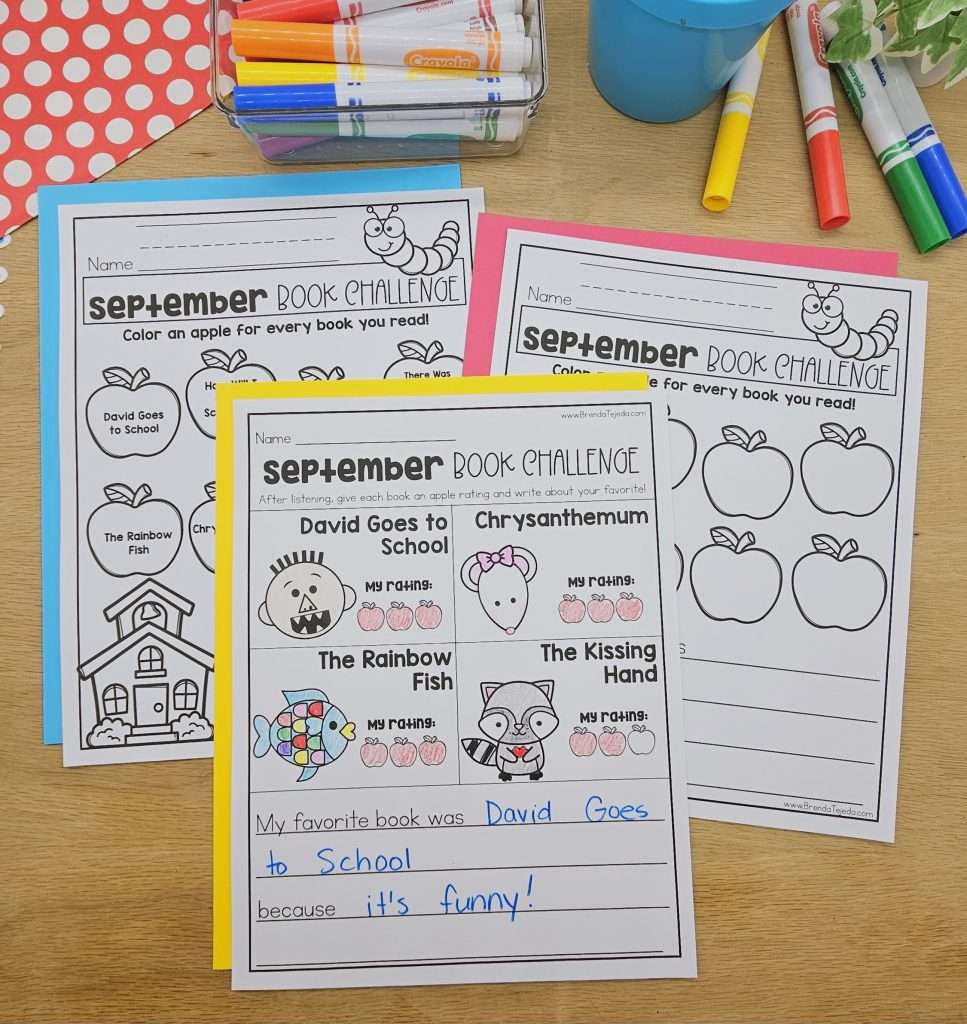 Crayola
Name
September BOOK CHALLENGE
Color an apple for every book you read!
David Goes
to School
There Was
The Rainbow
Fish
Name
September BOOK CHALLENGE
for every book you read!
www.BrendaTejeda.com
www.BrendaTejeda.com
Name
September BOOK CHALLENGE
After listening, give each book an apple rating and write about your favorite!
David Goes to
School
My rating:
Chrysanthemum
My rating:
The Rainbow
Fish
My rating:
The Kissing
Hand
My rating:
My favorite book was David Goes
to School
because it's funny!